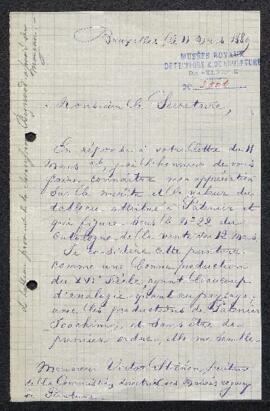 Bruxelles, le 11 Avril 1889
MUSÉES ROYAUX
DE PEINTURE & DE SCULPTURE
DE BELGIQUE
Monsieur le Secrétaire,
En réponse à votre lettre du 11
Mars, j'ai l'honneur de vous
faire connaître mon appréciation
sur le mérite et la valeur du
tableau attribué à Patenier et
qui figure sous le n° 22 du
Catalogue de la vente du 12 Mars
Je considère cette peinture
comme une bonne production
du XVI Siècle, ayant beaucoup
d'analogie, quant au paysage,
avec les productions de Patenier
Joachim, et sans être de
premier ordre, elle me semble
Monsieur Victor Stiénon, secrétaire
de la Commission, directrice des Musées royaux
de Peinture.